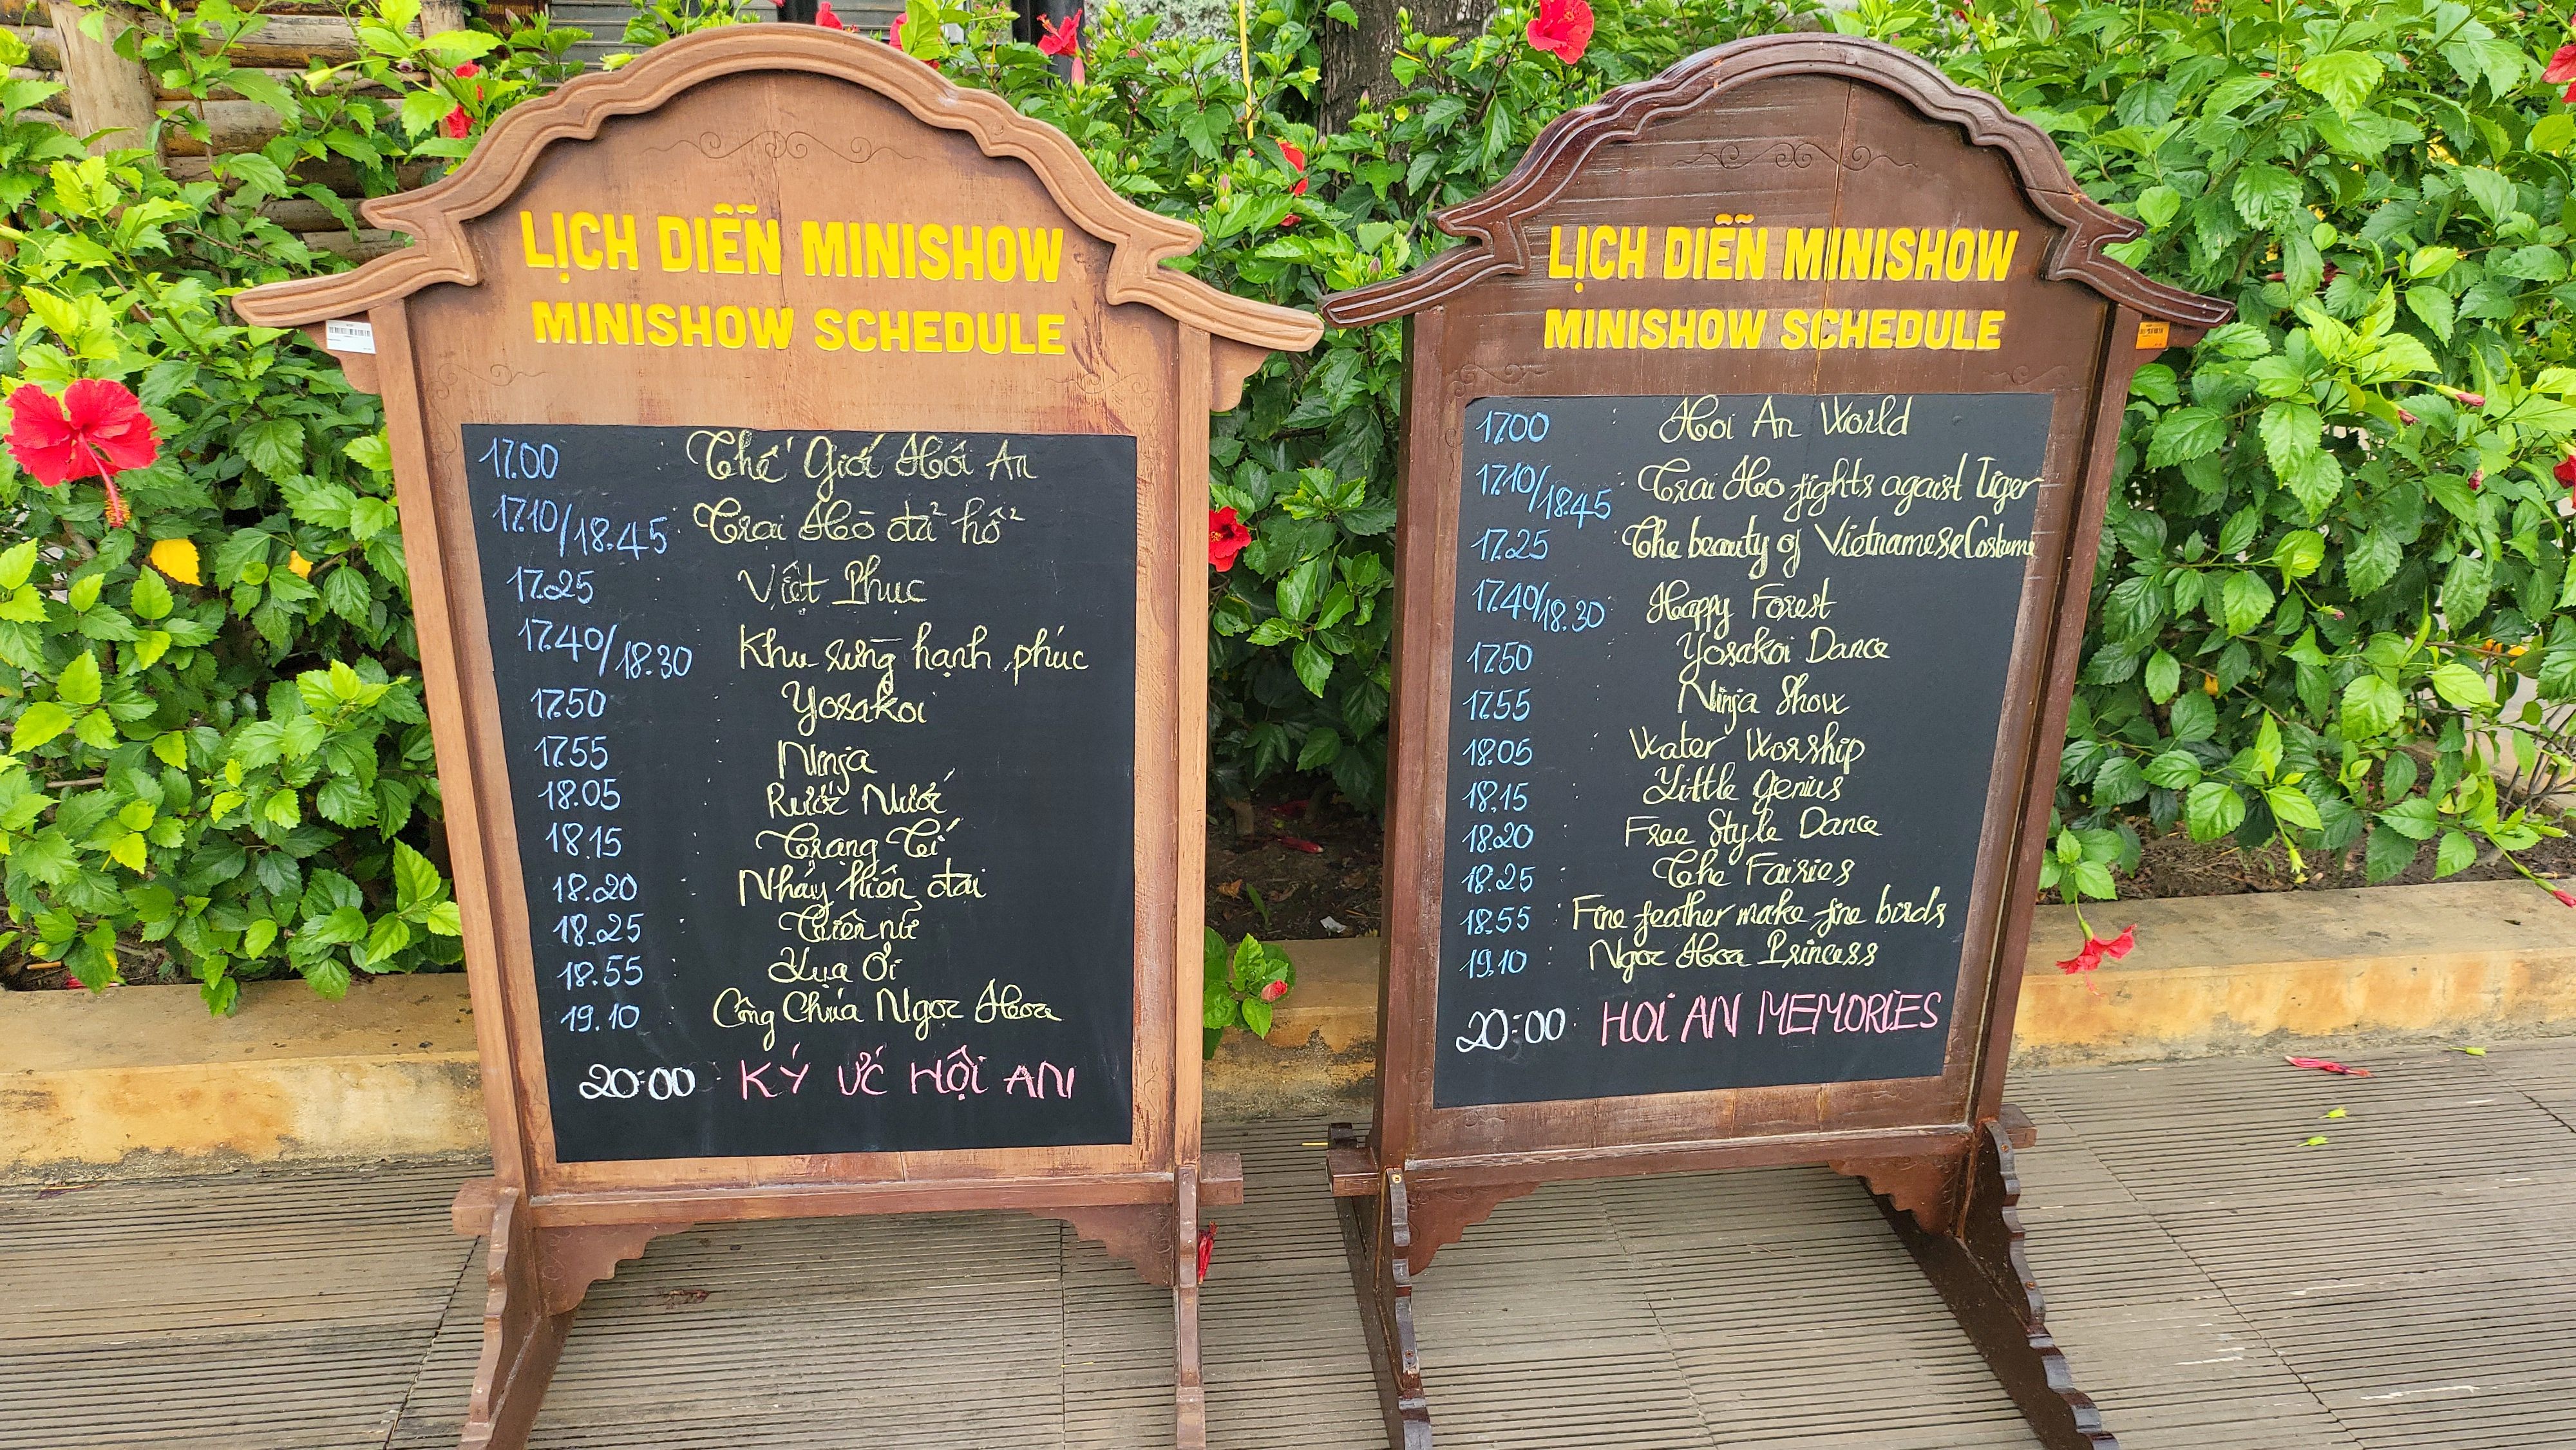 LỊCH DIỄN MINISHOW
MINISHOW SCHEDULE
17.00 : Thế Giới Hội An
17.10/18.45 : Trại Hò đả hổ
17.25 Việt Phục
17.40/18.30 Khu rừng hạnh phúc
17.50 : Yosakoi
17.55 : Ninja
18.05 : Rước Nước
18.15 : Trạng Tí
18.20 : Nhảy hiện đại
18.25 : Tiên nữ
18.55 : Lụa Ơi
19.10 : Công Chúa Ngọc Hoa
20:00 : KÝ ỨC HỘI AN
LỊCH DIỄN MINISHOW
MINISHOW SCHEDULE
17.00 : Hoi An World
17.10/18.45 : Trai Ho fights agaist Tiger
17.25 : The beauty of Vietnamese Costume
17.40/18.30 : Happy Forest
17.50 : Yosakoi Dance
17.55 : Ninja Show
18.05 : Water Worship
18.15 : Little Genius
18.20 : Free Style Dance
18.25 : The Fairies
18.55 : Fine feather make fine birds
19.10 : Ngoc Hoa Princess
20:00 : HOI AN MEMORIES